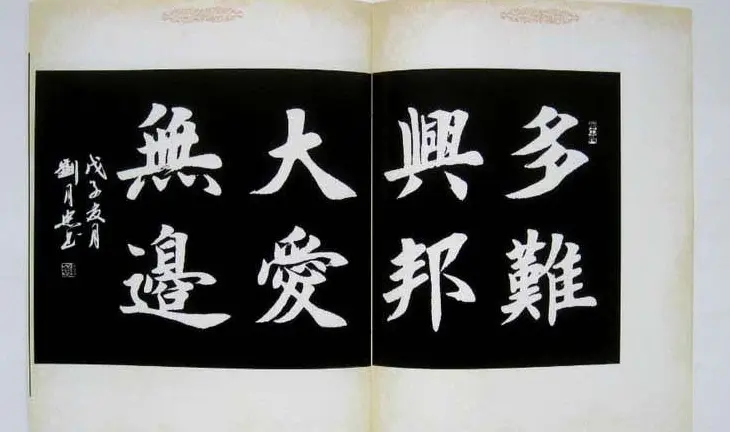 多難
興邦
大愛
無邊
戊子友月
劉月忠书